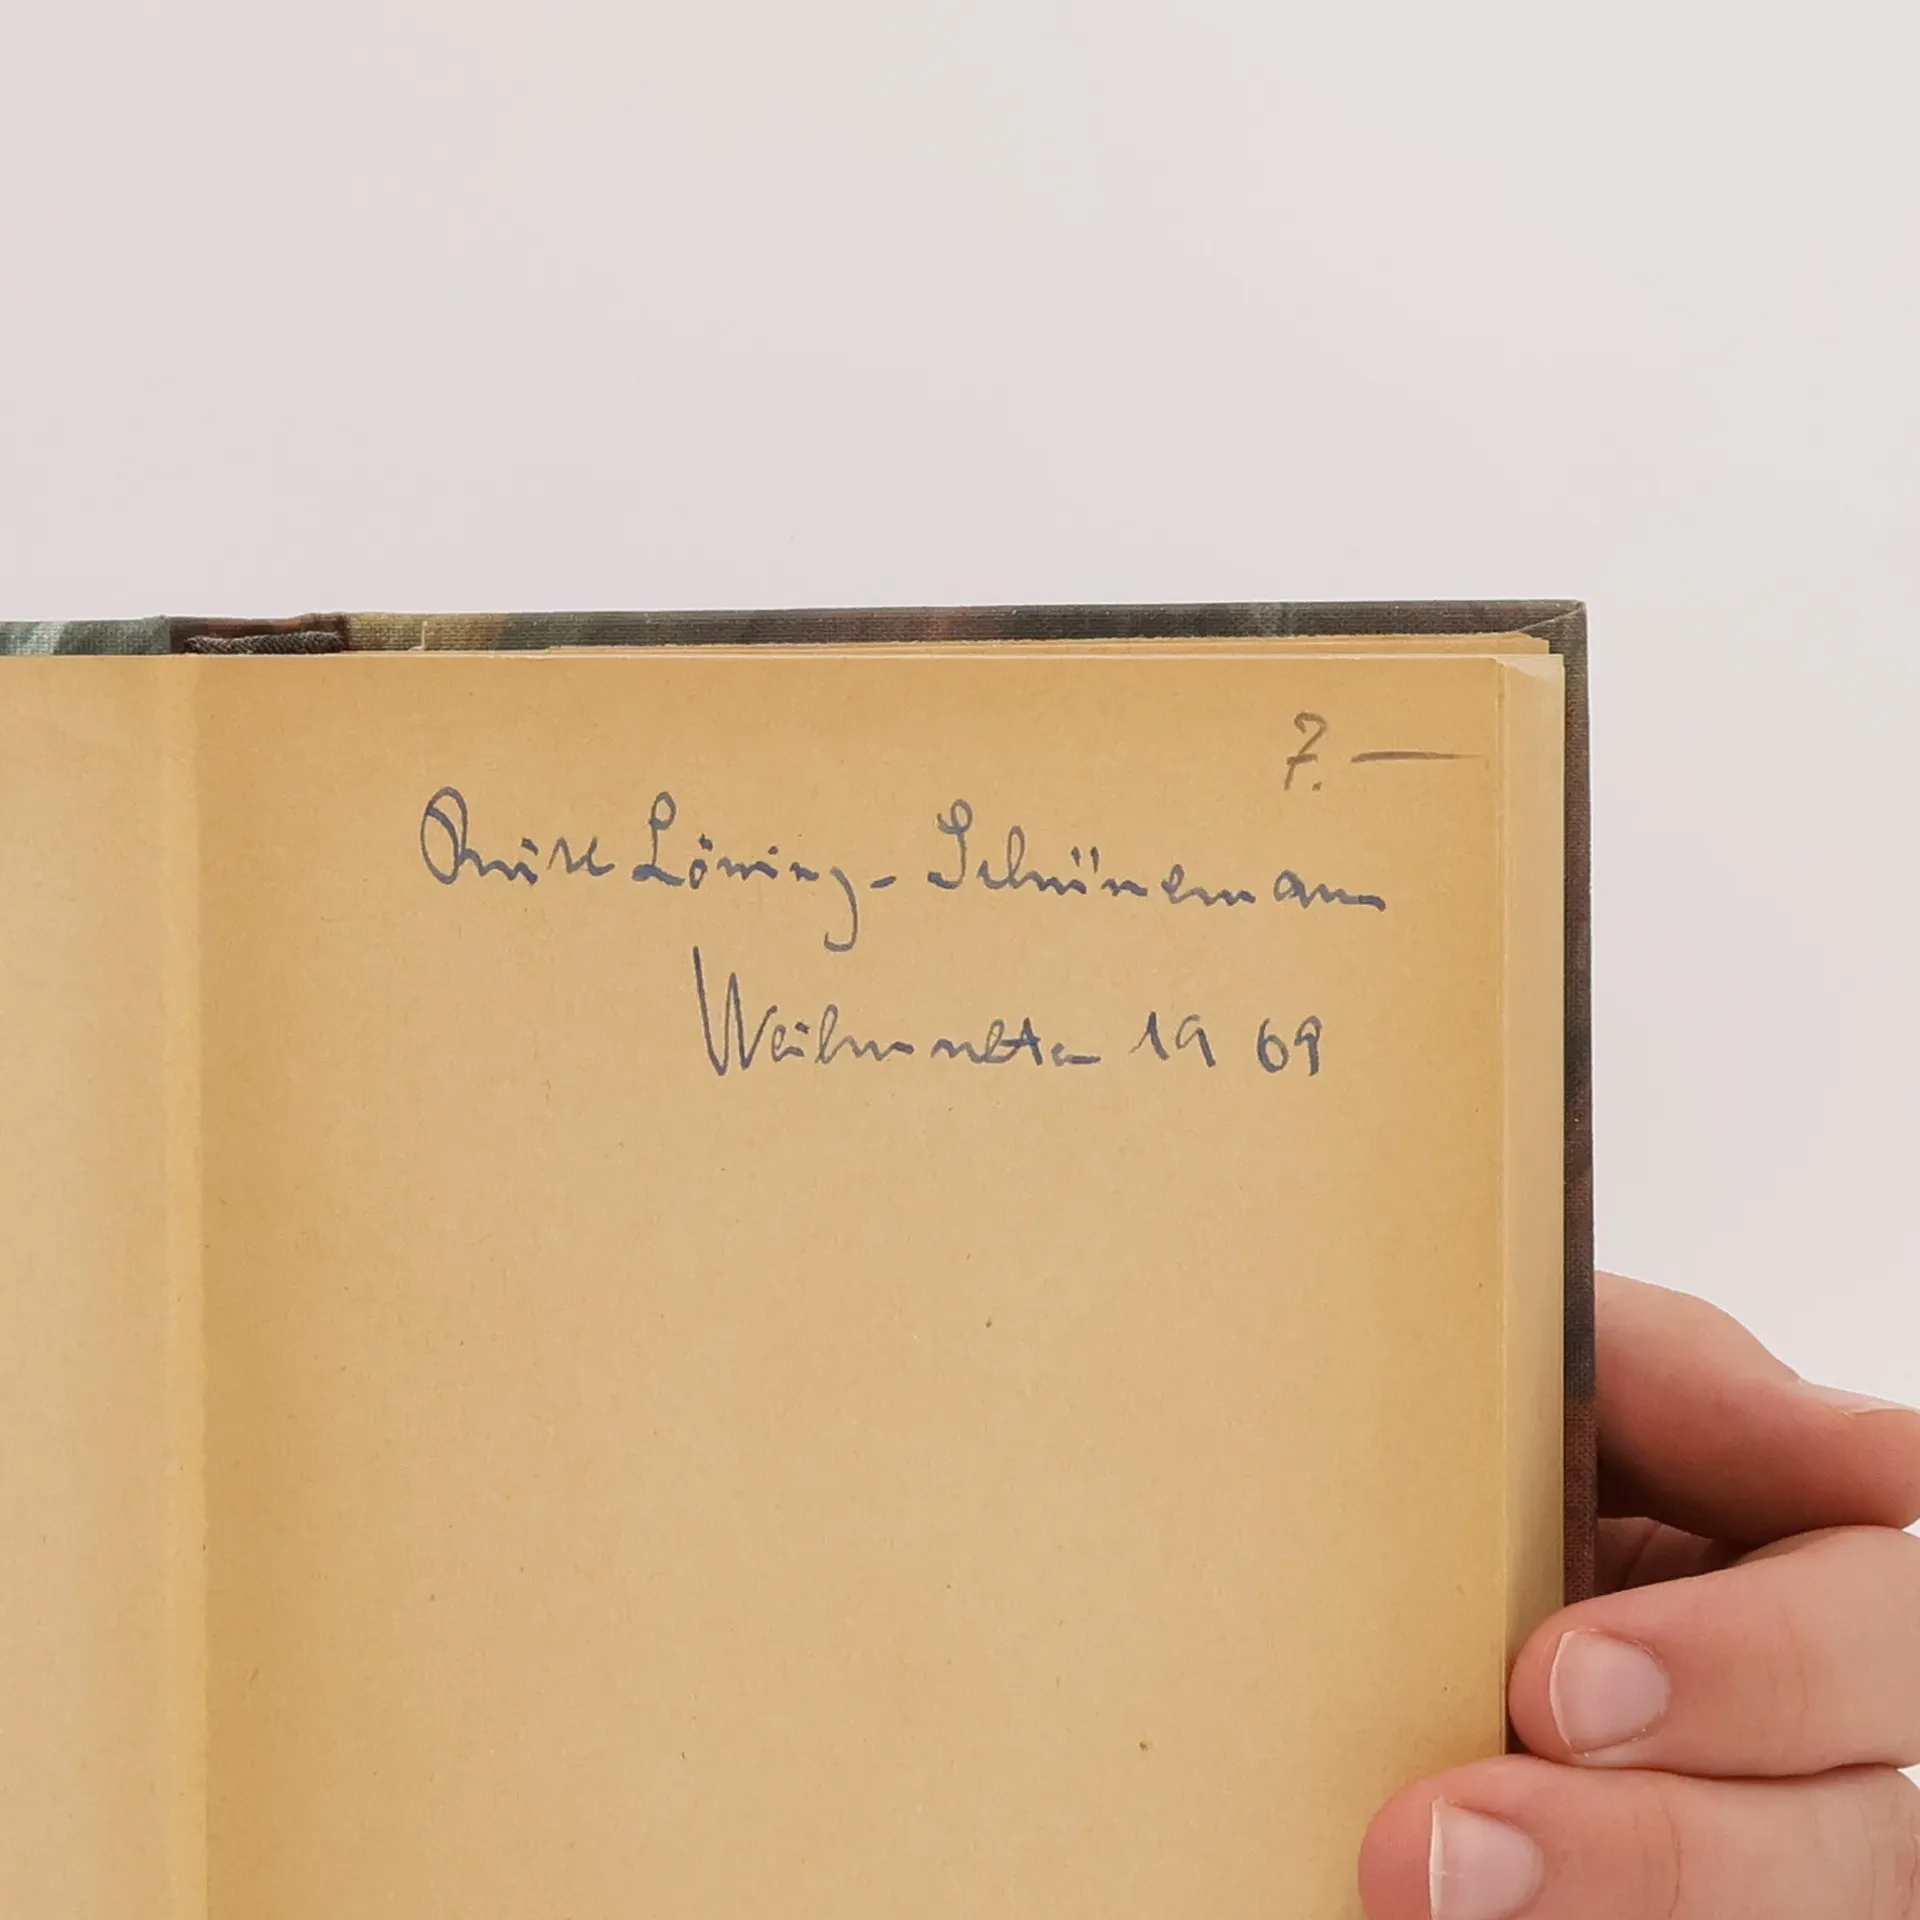 7.—
Ruth Löning-Schünemann
Weihnachten 1969